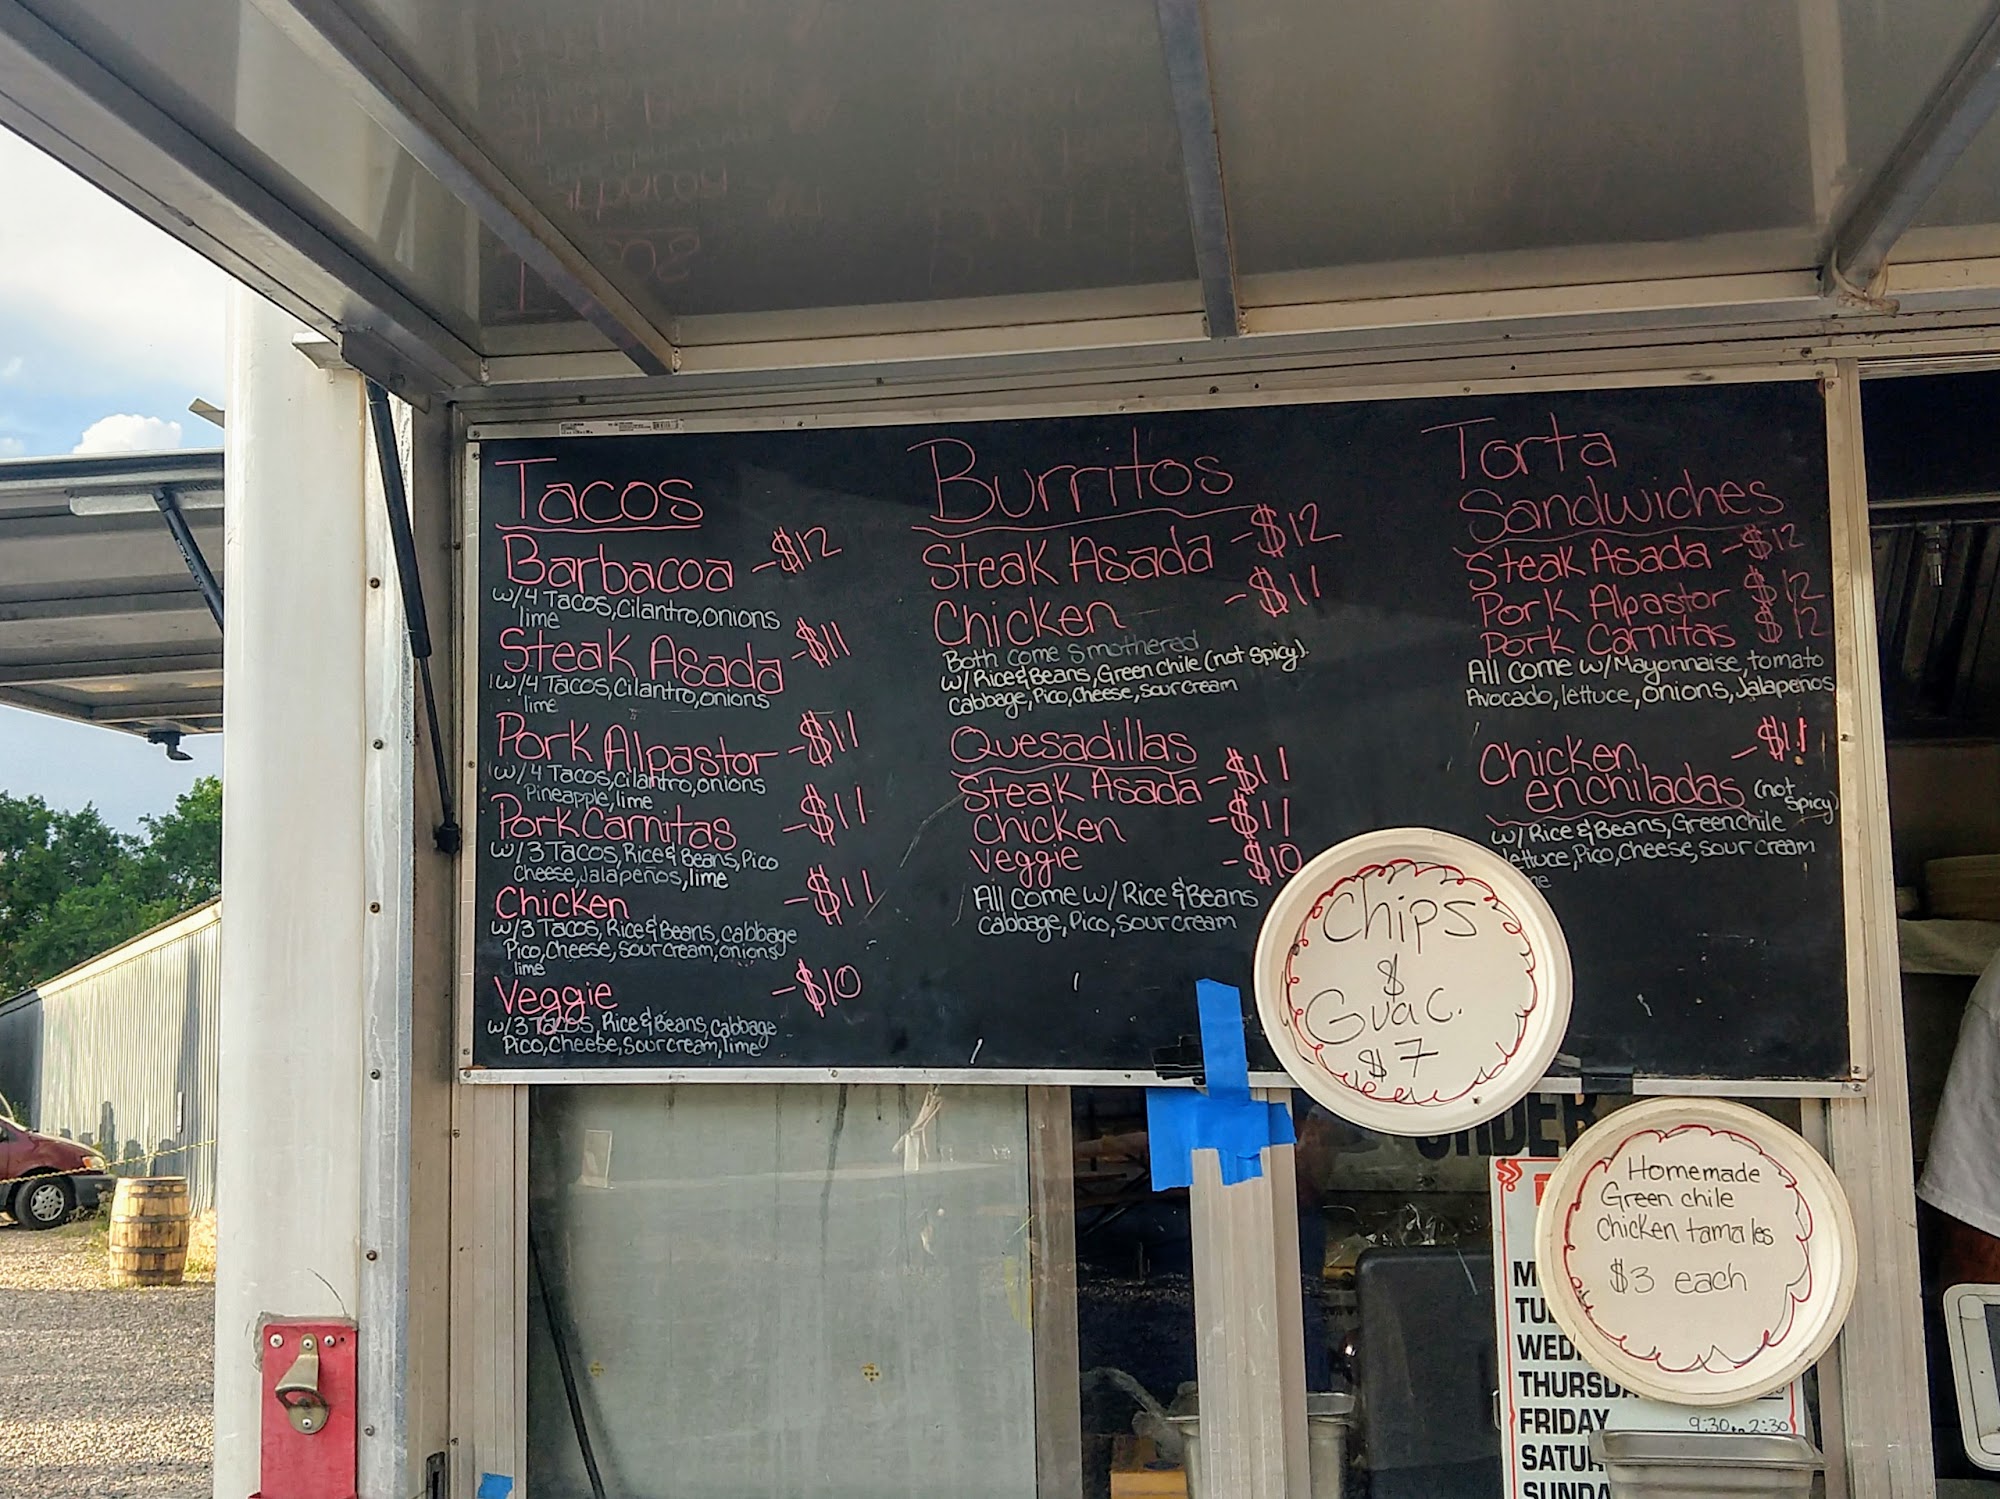 Tacos
Barbacoa -$12
w/4 Tacos, Cilantro, onions
lime
Steak Asada -$11
w/4 Tacos, Cilantro, onions
lime
Pork Alpastor -$11
w/4 Tacos, Cilantro, onions
Pineapple, lime
Pork Carnitas -$11
w/3 Tacos, Rice & Beans, Pico
Cheese, Jalapeños, lime
Chicken -$11
w/3 Tacos, Rice & Beans, Cabbage
Pico, Cheese, Sour cream, onions
lime
Veggie -$10
w/3 Tacos, Rice & Beans, Cabbage
Pico, Cheese, Sour cream, lime
Burritos
Steak Asada -$12
Chicken -$11
Both come smothered
w/ Rice & Beans, Green chile (not spicy).
Cabbage, Pico, Cheese, sour cream
Quesadillas
Steak Asada -$11
Chicken -$11
Veggie -$10
All come w/ Rice & Beans
Cabbage, Pico, sour cream
Torta
Sandwiches
Steak Asada -$12
Pork Alpastor $12
Pork Carnitas $12
All come w/Mayonnaise, tomato
Avocado, lettuce, onions, Jalapeños
Chicken -$11
enchiladas (not spicy)
w/ Rice & Beans, Green chile
lettuce, Pico, Cheese, sour cream
Chips
$
Guac.
$7
Homemade
Green chile
Chicken tamales
$3 each
THURSDA
FRIDAY 9:30 2:30
SATUR
SUNDA